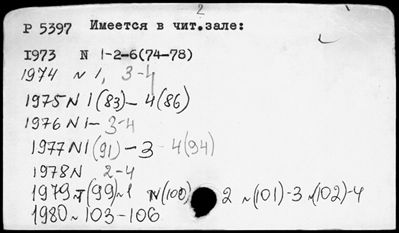 2
Р 5397 Имеется в чит.зале:
1973 N 1-2-6(74-78)
1974 N 1, 3-4
1975 N 1(83)-4(86)
1976 N 1- 3-4
1977 N1(91)-3 -4(94)
1978 N 2-4
1979 (99)-1 N(100) 2 N(101)-3 N(102)-4
1980 N 103-106